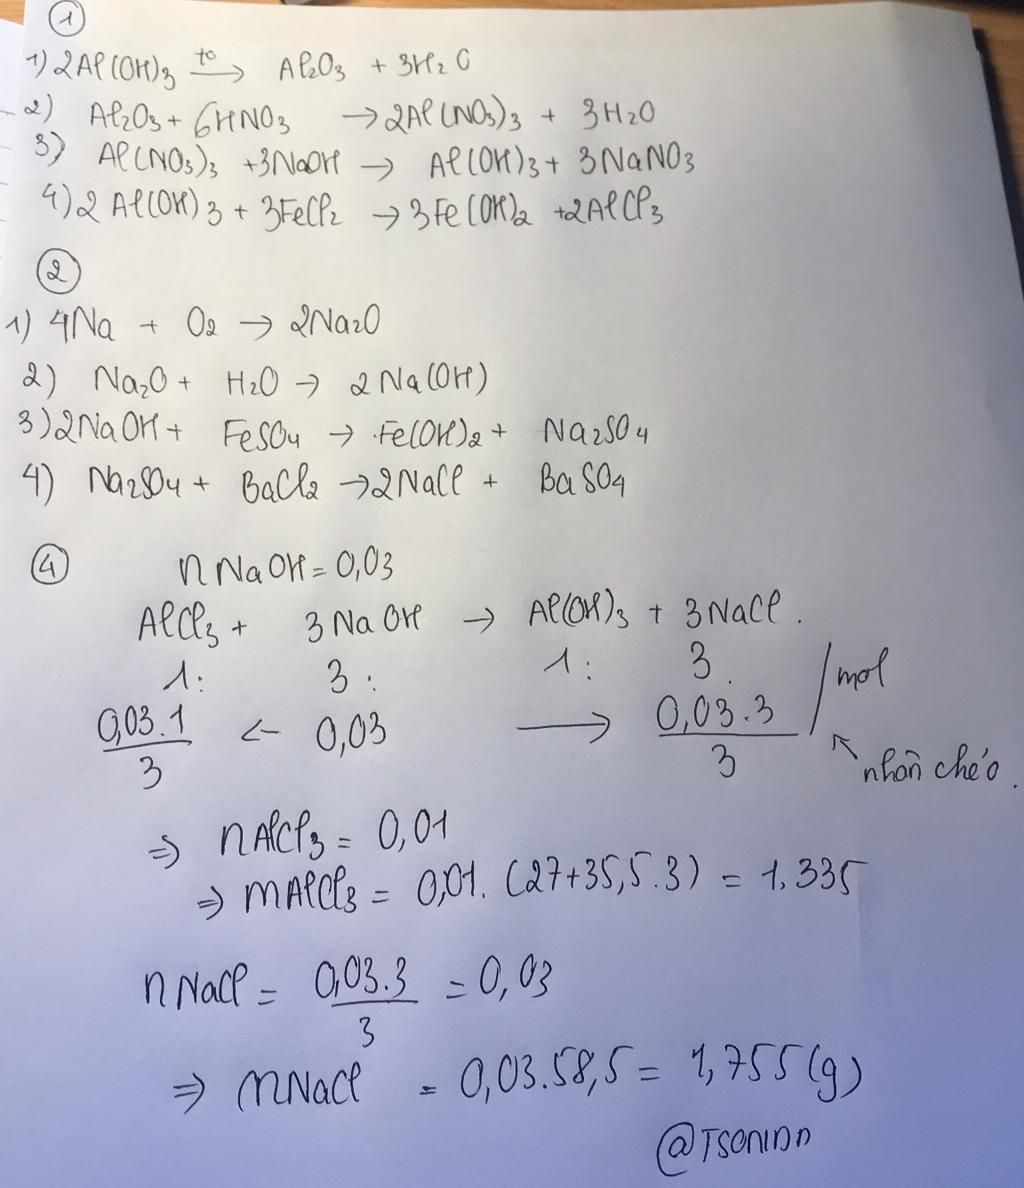 ①
1) 2Al(OH)3 to→ Al2O3 + 3H2O
2) Al2O3 + 6HNO3 → 2Al(NO3)3 + 3H2O
3) Al(NO3)3 + 3NaOH → Al(OH)3 + 3NaNO3
4) 2Al(OH)3 + 3FeCl2 → 3Fe(OH)2 + 2AlCl3
②
1) 4Na + O2 → 2Na2O
2) Na2O + H2O → 2Na(OH)
3) 2NaOH + FeSO4 → Fe(OH)2 + Na2SO4
4) Na2SO4 + BaCl2 → 2NaCl + BaSO4
④ nNaOH = 0,03
AlCl3 + 3NaOH → Al(OH)3 + 3NaCl.
1: 3: 1: 3 /mol
0,03.1/3 ← 0,03 → 0,03.3/3
↖ nhân chéo.
⇒ nAlCl3 = 0,01
⇒ mAlCl3 = 0,01. (27+35,5.3) = 1,335
nNaCl = 0,03.3/3 = 0,03
⇒ mNaCl = 0,03.58,5 = 1,755 (g)